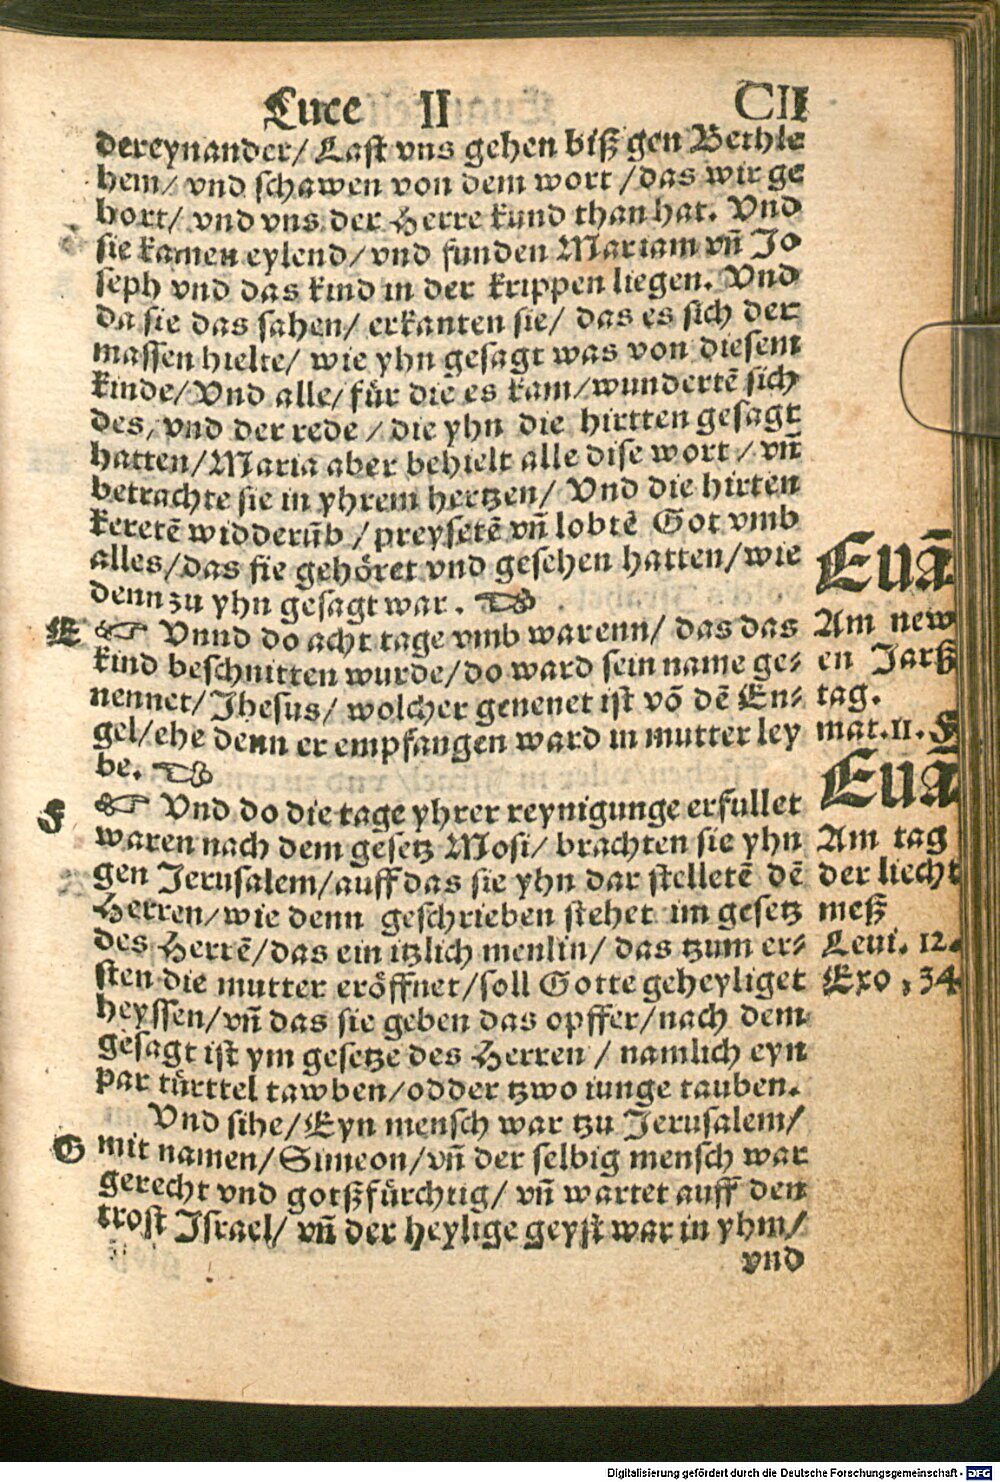 Luce II CII
dereynander/ Last vns gehen biß gen Bethle
hem/ vnd schawen von dem wort /das wir ge
hort/ vnd vns der Herre kund than hat. Vnd
sie kamen eylend/ vnd funden Mariam vñ Jo
seph vnd das kind in der krippen liegen. Vnd
da sie das sahen/ erkanten sie/ das es sich der
massen hielte/ wie yhn gesagt was von diesem
kinde/ Vnd alle/ für die es kam/ wundertẽ sich
des, vnd der rede / die yhn die hirtten gesagt
hatten/ Maria aber behielt alle dise wort / vñ
betrachte sie in yhrem hertzen/ Vnd die hirten
keretẽ widderũb / preysetẽ vñ lobtẽ Got vmb
alles/ das sie gehöret vnd gesehen hatten/ wie
denn zu yhn gesagt war. ☜
Euã
E ☞ Vnnd do acht tage vmb warenn/ das das
kind beschnitten wurde/ do ward sein name ge⸗
nennet/ Jhesus/ wolcher genenet ist võ dẽ En⸗
gel/ ehe denn er empfangen ward in mutter ley
be. ☜
Am new
en Jarß
tag.
mat.11. F
Euã
F ☞ Vnd do die tage yhrer reynigunge erfullet
waren nach dem gesetz Mosi/ brachten sie yhn
gen Jerusalem/ auff das sie yhn dar stelletẽ dẽ
Herren/ wie denn geschrieben stehet im gesetz
des Herrẽ/ das ein itzlich menlin/ das tzum er⸗
sten die mutter eröffnet/ soll Gotte geheyliget
heyssen/ vñ das sie geben das opffer/ nach dem
gesagt ist ym gesetze des Herren / namlich eyn
par türttel tawben/ odder tzwo iunge tauben.
Am tag
der liecht
meß
Leui. 12.
Exo , 34
Vnd sihe/ Eyn mensch war tzu Jerusalem/
G mit namen/ Simeon/ vñ der selbig mensch war
gerecht vnd gotßfürchtig/ vñ wartet auff den
trost Israel/ vñ der heylige geyst war in yhm/
vnd
Digitalisierung gefördert durch die Deutsche Forschungsgemeinschaft - DFG